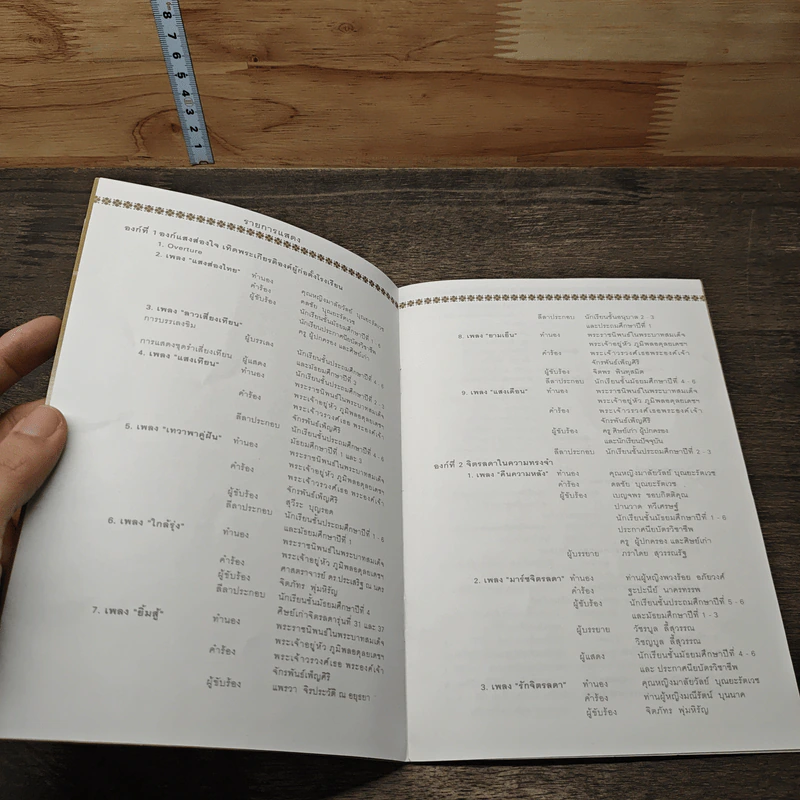 8 7 6 5 4 3 2 1
รายการแสดง
องก์ที่ 1 องก์แสงส่องใจ เทิดพระเกียรติองค์ผู้ก่อตั้งโรงเรียน
1. Overture
2. เพลง "แสงส่องไทย" ทำนอง คุณหญิงมาลัยวัลย์ บุณยะรัตเวช
คำร้อง ดลชัย บุณยะรัตเวช
ผู้ขับร้อง นักเรียนชั้นมัธยมศึกษาปีที่
นักเรียนประกาศนียบัตรวิชาชีพ
ครู ผู้ปกครอง และศิษย์เก่า
3. เพลง "ลาวเสี่ยงเทียน"
การบรรเลงขิม ผู้บรรเลง นักเรียนชั้นประถมศึกษาปีที่ 4 - 6
และมัธยมศึกษาปีที่ 3
การแสดงชุดรำเสี่ยงเทียน ผู้แสดง นักเรียนชั้นประถมศึกษาปีที่ 2 - 3
4. เพลง "แสงเทียน" ทำนอง พระราชนิพนธ์ในพระบาทสมเด็จ
พระเจ้าอยู่หัว ภูมิพลอดุลยเดชฯ
คำร้อง พระเจ้าวรวงศ์เธอ พระองค์เจ้า
จักรพันธ์เพ็ญศิริ
ลีลาประกอบ นักเรียนชั้นประถมศึกษาปีที่ 4 - 6
มัธยมศึกษาปีที่ 1 และ 3
5. เพลง "เทวาพาคู่ฝัน" ทำนอง พระราชนิพนธ์ในพระบาทสมเด็จ
พระเจ้าอยู่หัว ภูมิพลอดุลยเดชฯ
คำร้อง พระเจ้าวรวงศ์เธอ พระองค์เจ้า
จักรพันธ์เพ็ญศิริ
ผู้ขับร้อง สุวีระ บุญรอด
ลีลาประกอบ นักเรียนชั้นประถมศึกษาปีที่ 1 - 6
และมัธยมศึกษาปีที่ 1
6. เพลง "ใกล้รุ่ง" ทำนอง พระราชนิพนธ์ในพระบาทสมเด็จ
พระเจ้าอยู่หัว ภูมิพลอดุลยเดชฯ
คำร้อง ศาสตราจารย์ ดร.ประเสริฐ ณ นคร
ผู้ขับร้อง จิตภัทร พุ่มหิรัญ
ลีลาประกอบ นักเรียนชั้นมัธยมศึกษาปีที่ 4
ศิษย์เก่าจิตรลดารุ่นที่ 31 และ 37
7. เพลง "ยิ้มสู้" ทำนอง พระราชนิพนธ์ในพระบาทสมเด็จ
พระเจ้าอยู่หัว ภูมิพลอดุลยเดชฯ
คำร้อง พระเจ้าวรวงศ์เธอ พระองค์เจ้า
จักรพันธ์เพ็ญศิริ
ผู้ขับร้อง แพรวา จิรประวัติ ณ อยุธยา
ลีลาประกอบ นักเรียนชั้นอนุบาล 2 - 3
และประถมศึกษาปีที่ 1
8. เพลง "ยามเย็น" ทำนอง พระราชนิพนธ์ในพระบาทสมเด็จ
พระเจ้าอยู่หัว ภูมิพลอดุลยเดชฯ
คำร้อง พระเจ้าวรวงศ์เธอพระองค์เจ้า
จักรพันธ์เพ็ญศิริ
ผู้ขับร้อง จิตพร
ลีลาประกอบ นักเรียนชั้นประถมศึกษาปีที่ 4 - 6
9. เพลง "แสงเดือน" ทำนอง พระราชนิพนธ์ในพระบาทสมเด็จ
พระเจ้าอยู่หัว ภูมิพลอดุลยเดชฯ
คำร้อง พระเจ้าวรวงศ์เธอพระองค์เจ้า
จักรพันธ์เพ็ญศิริ
ผู้ขับร้อง ครู ศิษย์เก่า ผู้ปกครอง
และนักเรียนปัจจุบัน
ลีลาประกอบ นักเรียนชั้นประถมศึกษาปีที่ 2 - 3
องก์ที่ 2 จิตรลดาในความทรงจำ
1. เพลง "คืนความหลัง" ทำนอง คุณหญิงมาลัยวัลย์ บุณยะรัตเวช
คำร้อง ดลชัย บุณยะรัตเวช
ผู้ขับร้อง เบญจพร ชอบกิตติคุณ
ปานวาด ทวีเศรษฐ์
นักเรียนชั้นประถมศึกษาปีที่ 1 - 6
ประกาศนียบัตรวิชาชีพ
ครู ผู้ปกครอง และศิษย์เก่า
ผู้บรรยาย ภราไดย สุวรรณรัฐ
2. เพลง "มาร์ชจิตรลดา" ทำนอง ท่านผู้หญิงพวงร้อย อภัยวงศ์
คำร้อง ฐะปะนีย์ นาครทรรพ
ผู้ขับร้อง นักเรียนชั้นประถมศึกษาปีที่ 5 - 6
และมัธยมศึกษาปีที่ 1 - 3
ผู้บรรยาย วัชรบูล ลี้สุวรรณ
วิชญบูล ลี้สุวรรณ
ผู้แสดง นักเรียนชั้นมัธยมศึกษาปีที่ 4 - 6
และ ประกาศนียบัตรวิชาชีพ
3. เพลง "รักจิตรลดา" ทำนอง คุณหญิงมาลัยวัลย์ บุณยะรัตเวช
คำร้อง ท่านผู้หญิงมณีรัตน์ บุนนาค
ผู้ขับร้อง จิตภัทร พุ่มหิรัญ